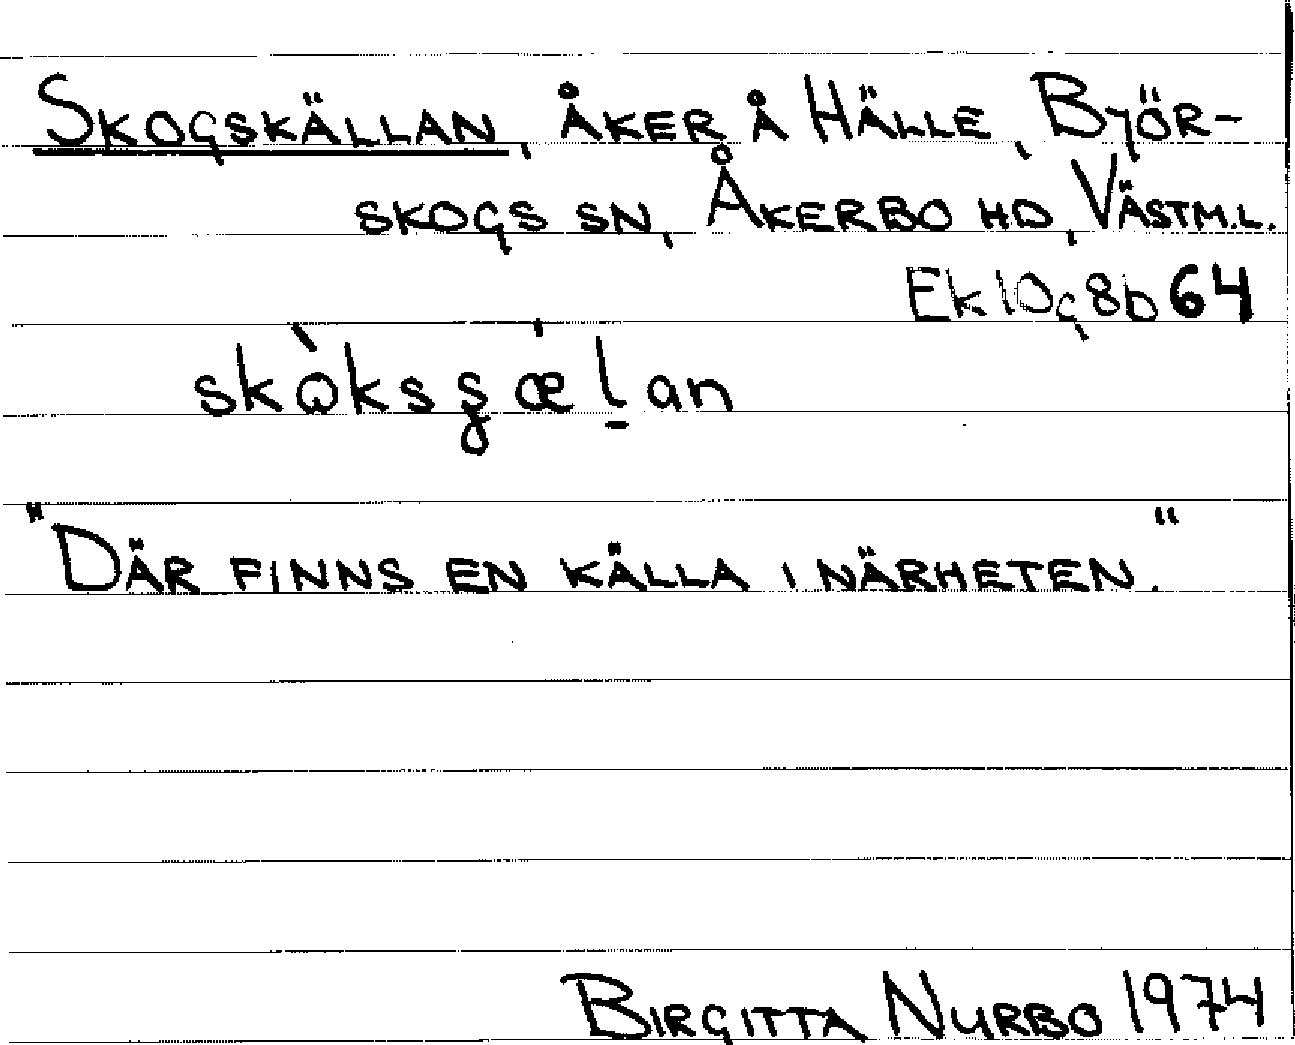 SKOGSKÄLLAN, ÅKER Å HÄLLE, BJÖR-
SKOGS SN, ÅKERBO HD, VÄSTM.L.
Ek 10g8b64
"DÄR FINNS EN KÄLLA I NÄRHETEN."
BIRGITTA NURBO 1974